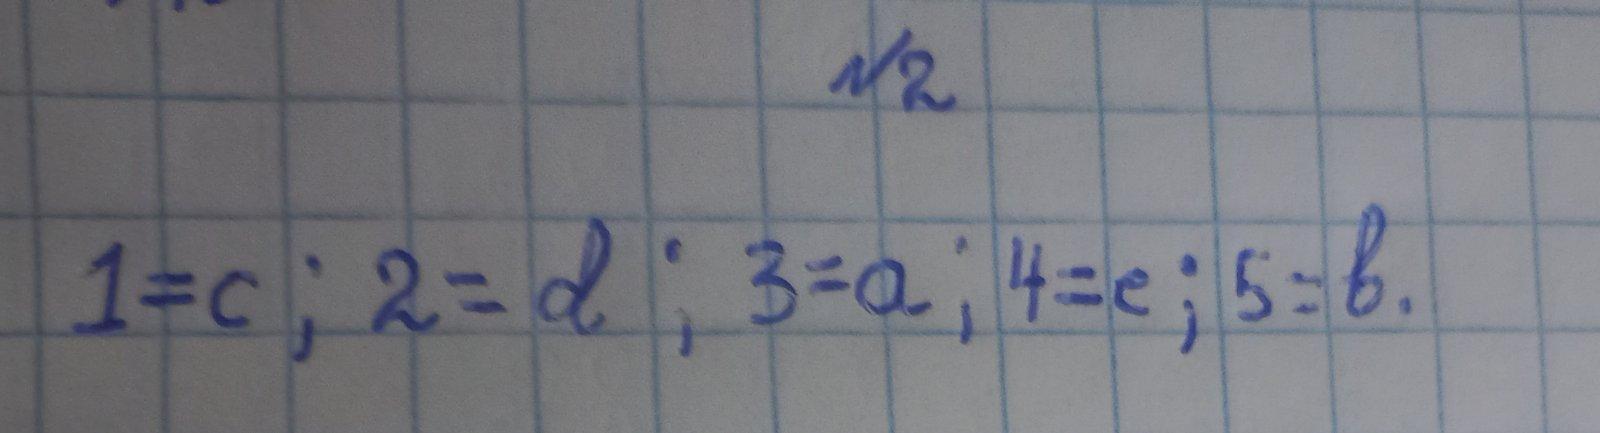 №2
1=c; 2=d; 3=a; 4=e; 5=b.